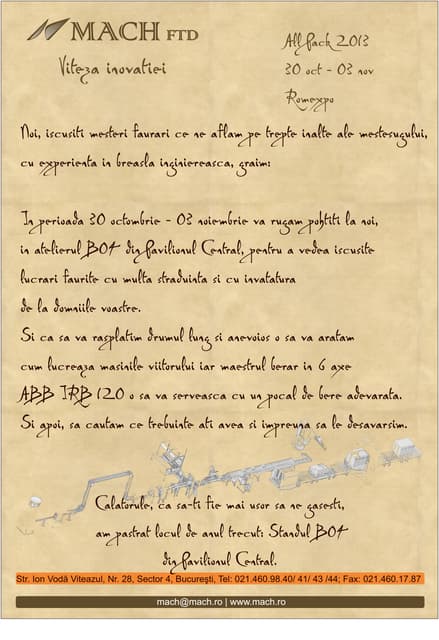 MACH FTD
Viteza inovatiei
All Pack 2013
30 oct - 03 nov
Romexpo
Noi, iscusiti mesteri faurari ce ne aflam pe trepte inalte ale mestesugului,
cu experienta in breasla inginiereasca, graim:
In perioada 30 octombrie - 03 noiembrie va rugam pohtiti la noi,
in atelierul B04 din Pavilionul Central, pentru a vedea iscusite
lucrari faurite cu multa straduinta si cu invatatura
de la domniile voastre.
Si ca sa va rasplatim drumul lung si anevoios o sa va aratam
cum lucreaza masinile viitorului iar maestrul berar in 6 axe
ABB IRB 120 o sa va serveasca cu un pocal de bere adevarata.
Si apoi, sa cautam ce trebuinte ati avea si impreuna sa le desavarsim.
Calatorule, ca sa-ti fie mai usor sa ne gasesti,
am pastrat locul de anul trecut: Standul B04
din Pavilionul Central.
Str. Ion Vodă Viteazul, Nr. 28, Sector 4, Bucureşti, Tel: 021.460.98.40/ 41/ 43 /44; Fax: 021.460.17.87
mach@mach.ro | www.mach.ro